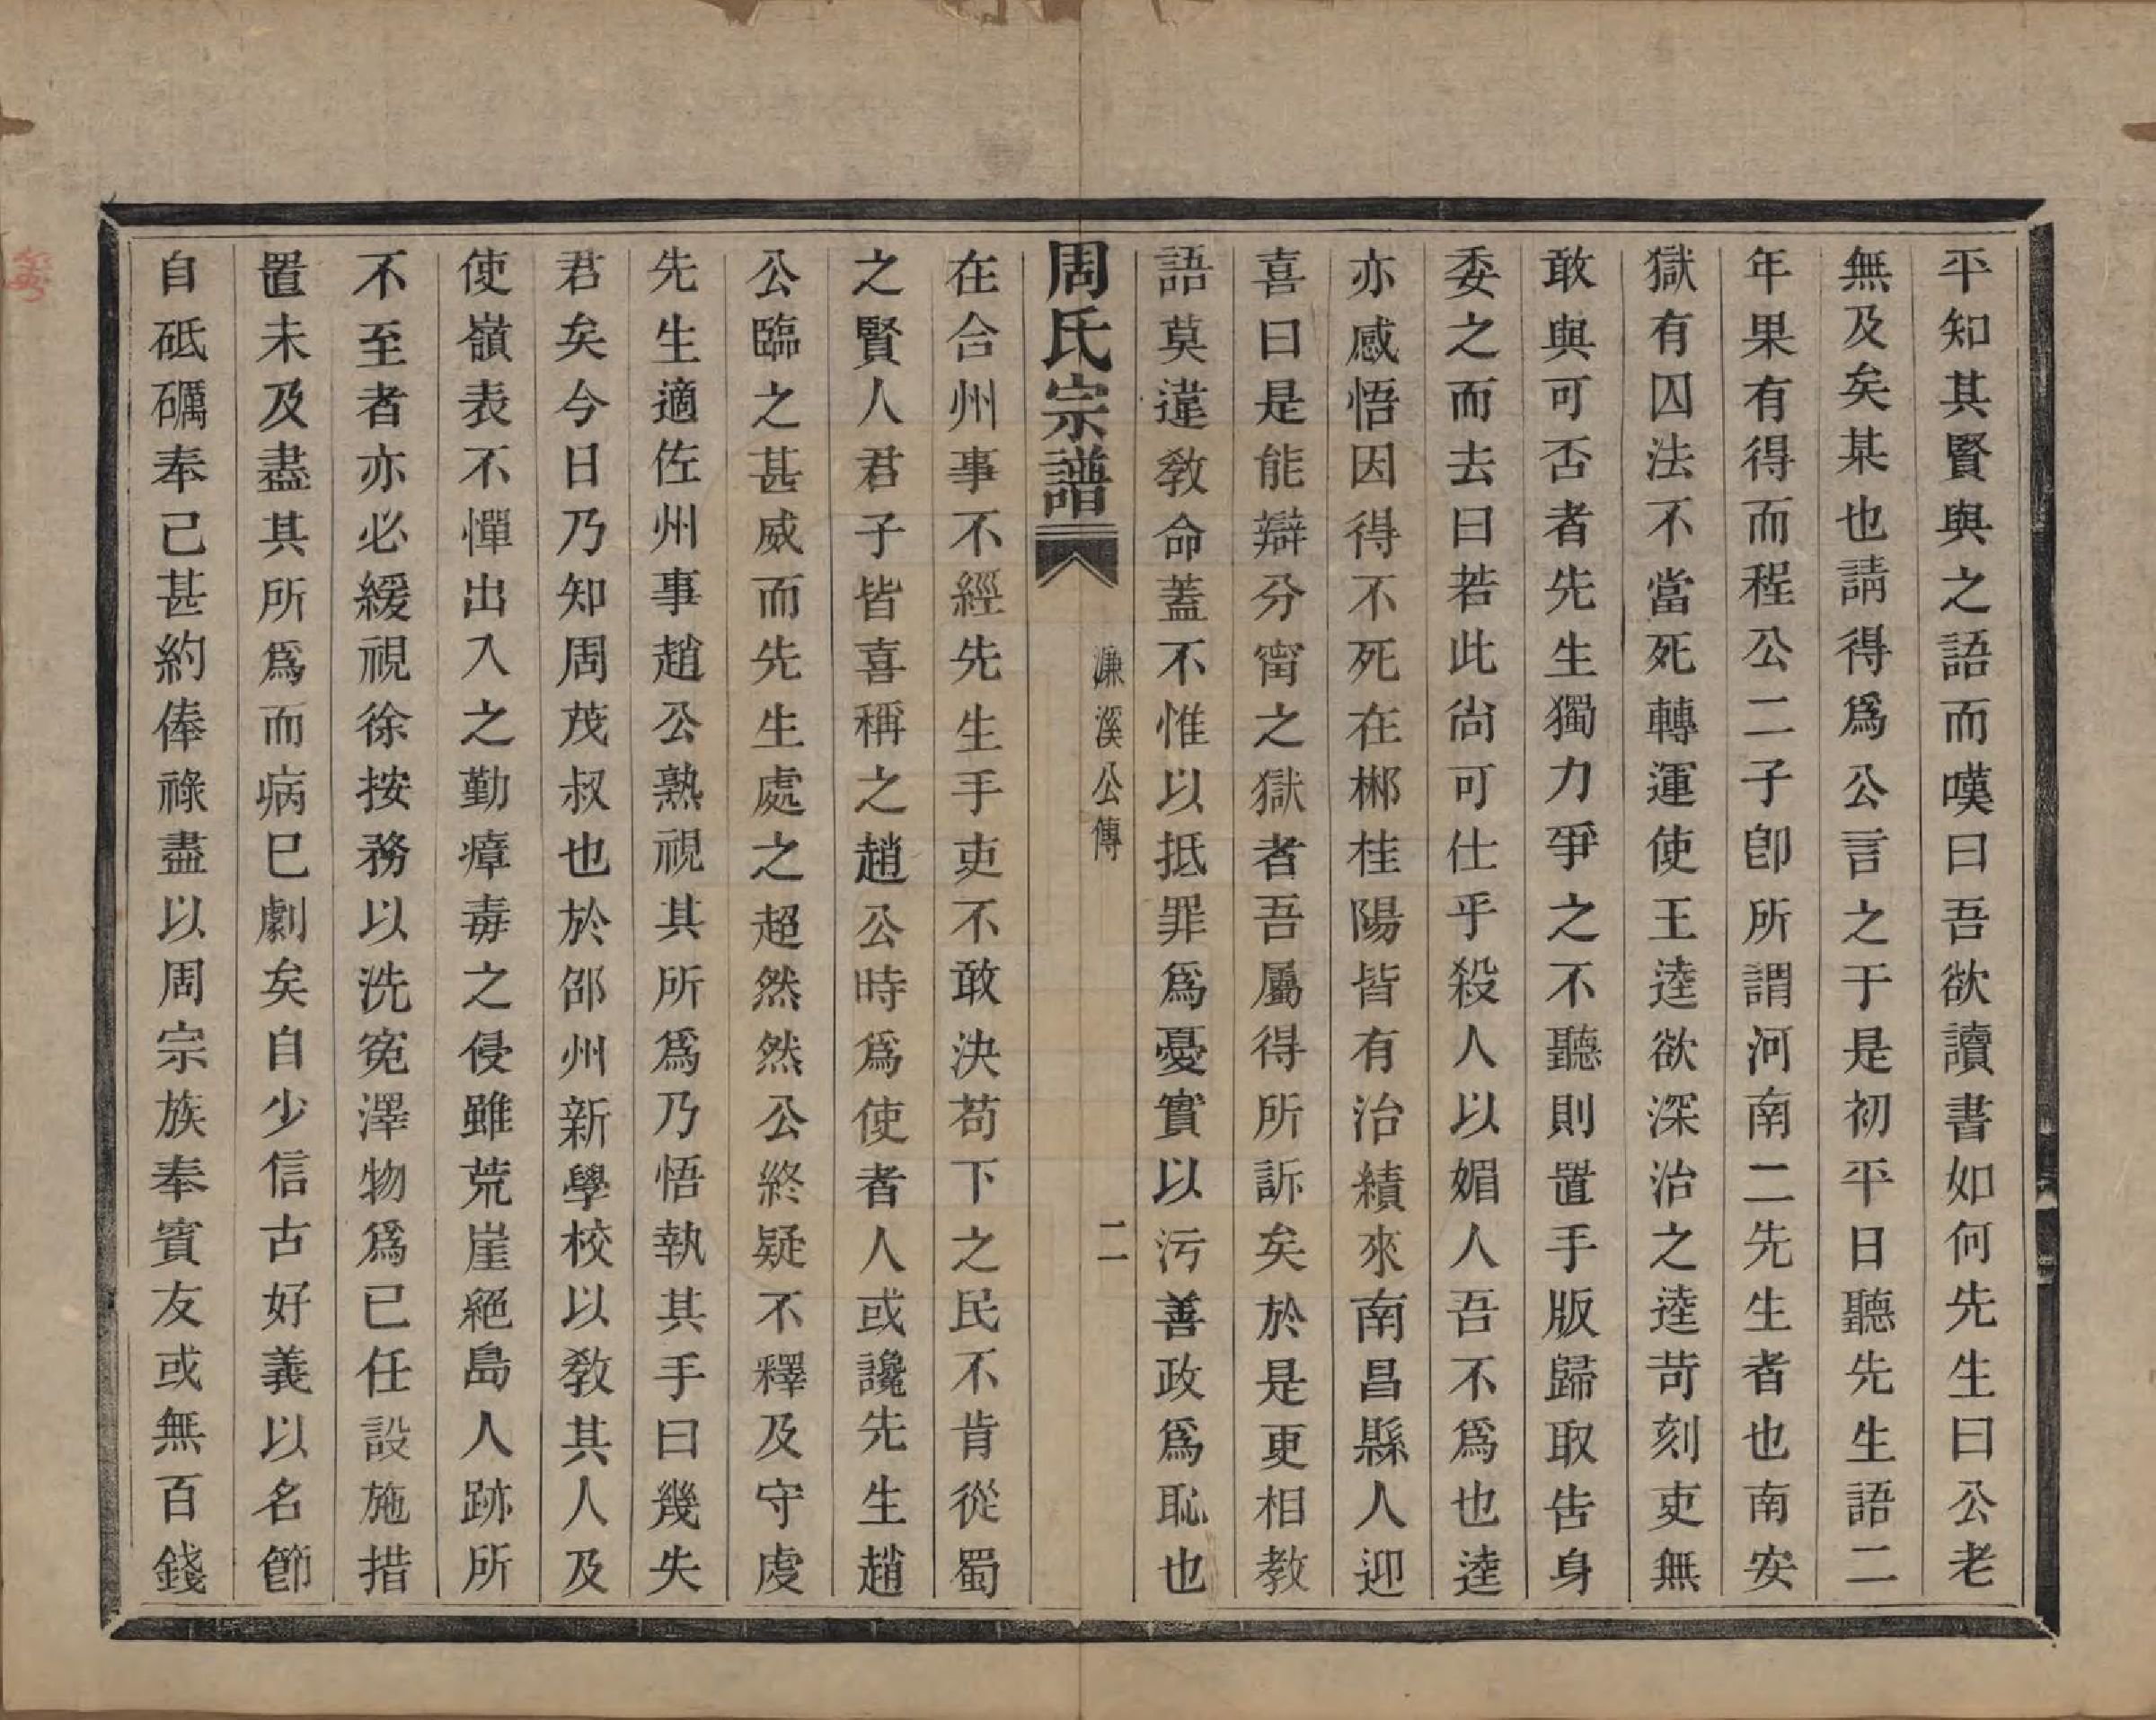 平知其賢與之語而嘆曰吾欲讀書如何先生曰公老
無及矣某也請得爲公言之于是初平日聽先生語二
年果有得而程公二子卽所謂河南二先生者也南安
獄有囚法不當死轉運使王逵欲深治之逵苛刻吏無
敢與可否者先生獨力爭之不聽則置手版歸取告身
委之而去曰若此尙可仕乎殺人以媚人吾不爲也逵
亦感悟因得不死在郴桂陽皆有治績來南昌縣人迎
喜曰是能辯分甯之獄者吾屬得所訴矣於是更相教
語莫違教命蓋不惟以抵罪爲憂實以污善政爲恥也
周氏宗譜
濂溪公傳
二
在合州事不經先生手吏不敢決苟下之民不肯從蜀
之賢人君子皆喜稱之趙公時爲使者人或讒先生趙
公臨之甚威而先生處之超然然公終疑不釋及守虔
先生適佐州事趙公熟視其所爲乃悟執其手曰幾失
君矣今日乃知周茂叔也於邵州新學校以教其人及
使嶺表不憚出入之勤瘴毒之侵雖荒崖絕島人跡所
不至者亦必緩視徐按務以洗冤澤物爲已任設施措
置未及盡其所爲而病已劇矣自少信古好義以名節
自砥礪奉己甚約俸祿盡以周宗族奉賓友或無百錢